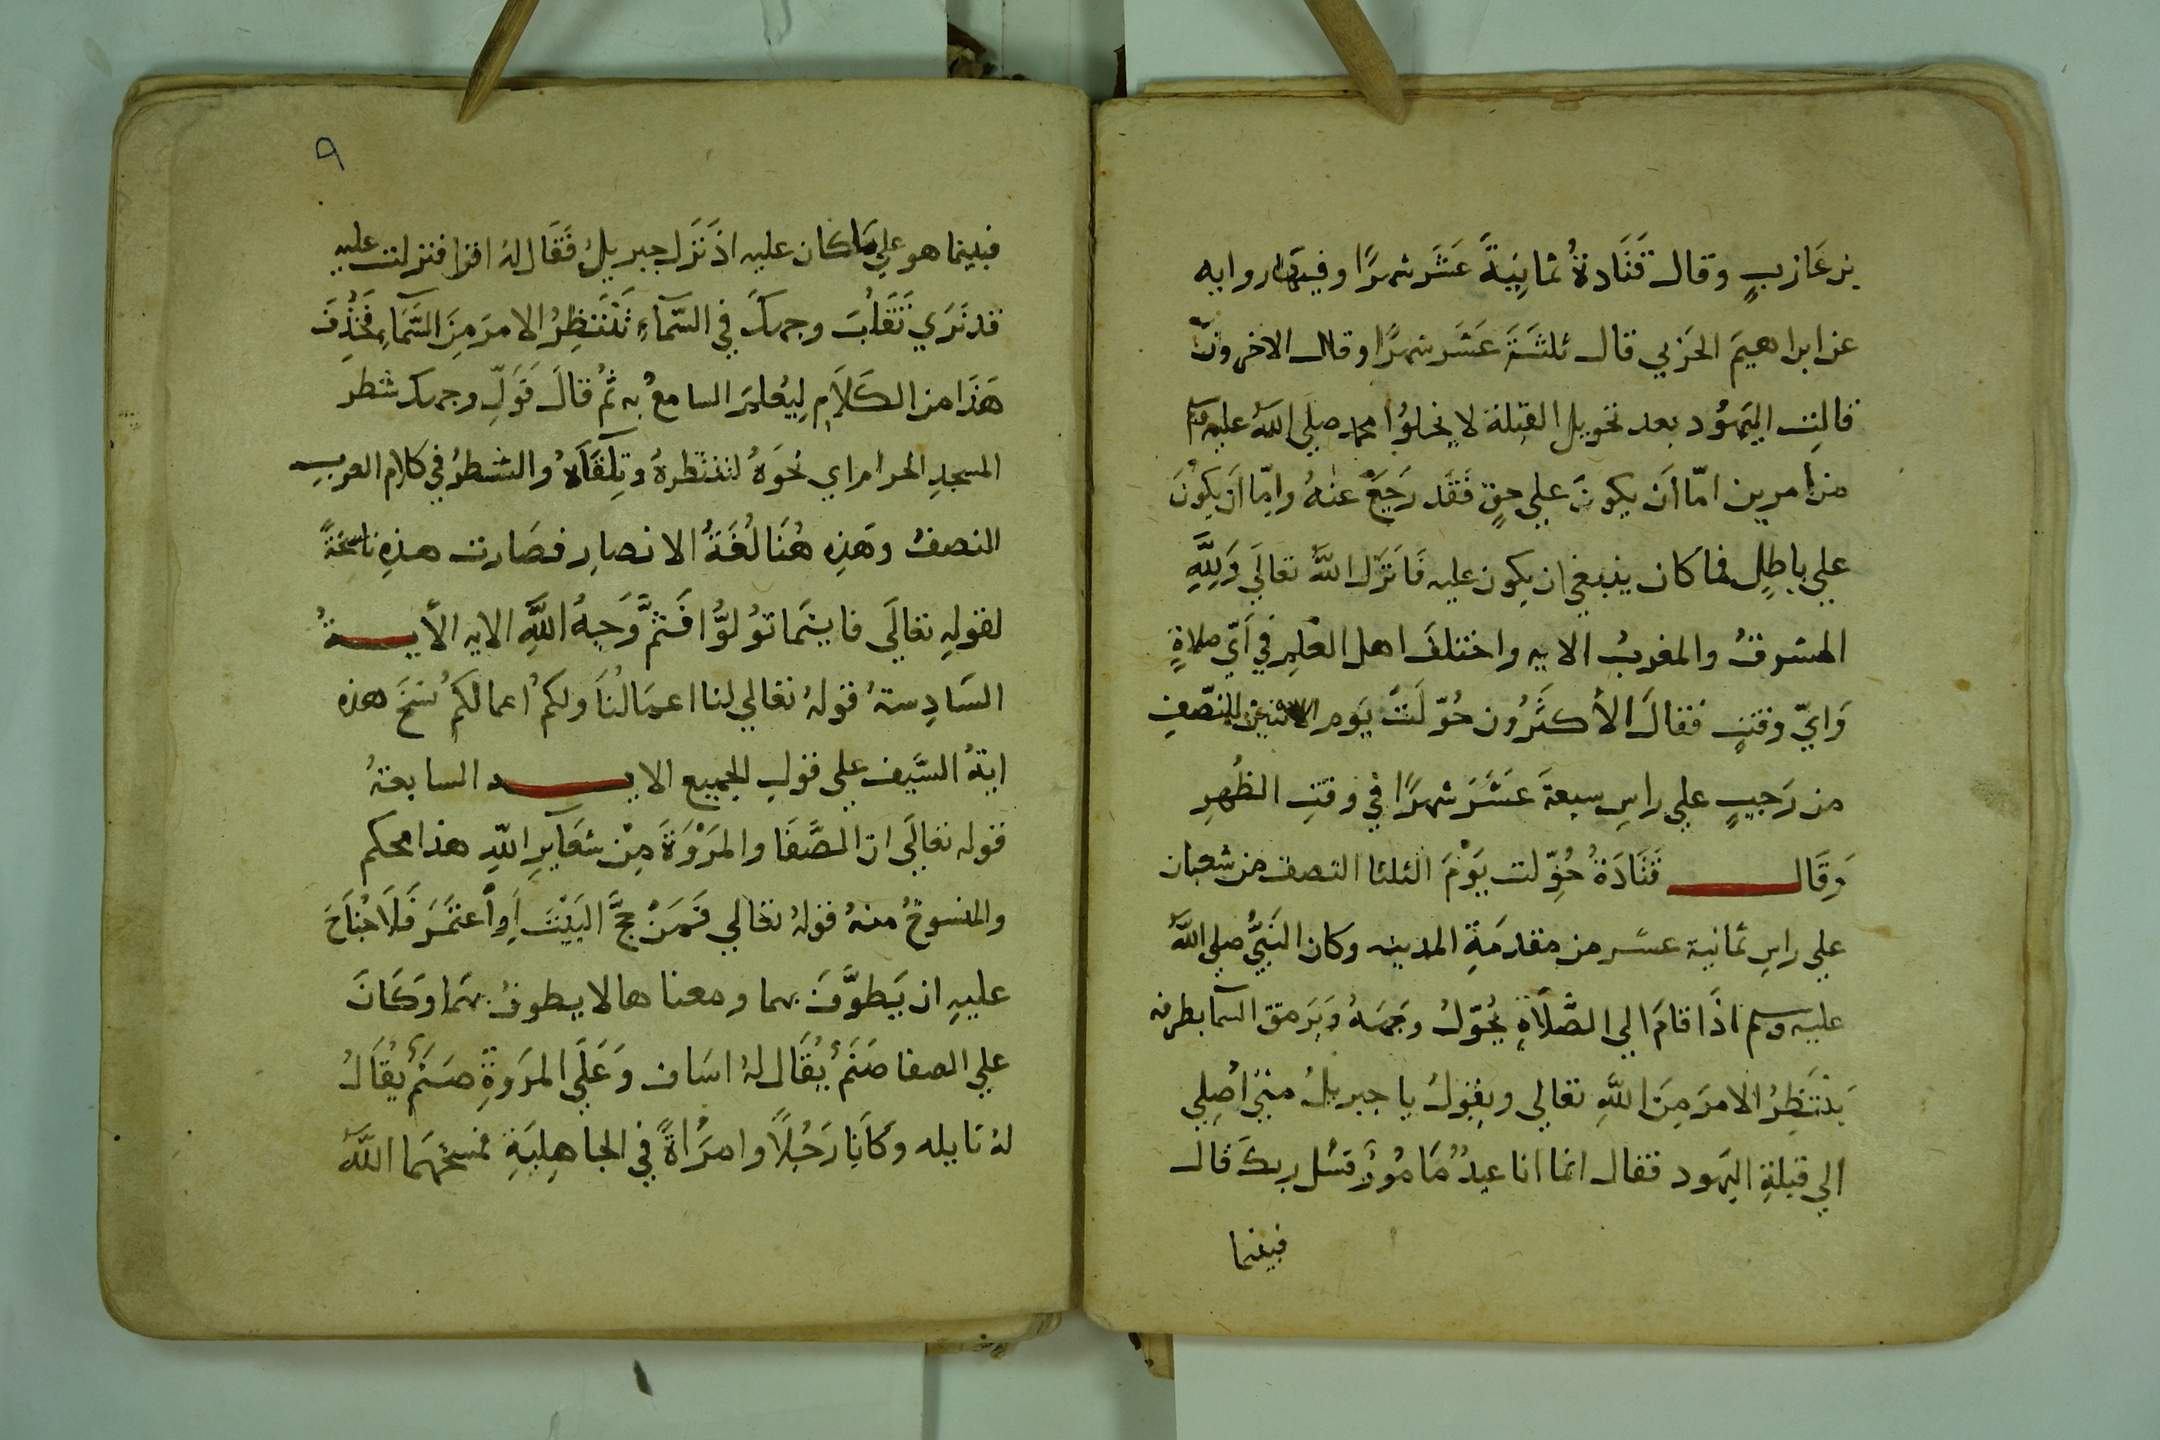 بن عَازبٍ وقال قَتَادةُ ثمانِيَةَ عَشَر شهرًا وفيها روايه
عن ابراهيمَ الحَرْبي قال ثلثَةَ عَشَر شهرًا وقال الاخرون
قالتِ اليَهُود بعد تحويل القِبلة لا يخلوا محمد صلى اللهُ عليه وسلم
من امرين امّا أن يكونَ علي حقٍ فَقَد رَجَعَ عنهُ وامّا أن يكونَ
علي باطِلٍ فما كان ينبغي ان يكون عليه فَانزل اللهُ تعالَي وَلِلَّهِ
المشرقُ والمغربُ الايه واختلفَ اهل العِلمِ في اَيّ صلاةٍ
وَايّ وقتٍ فقالَ الأكثَرُون حُوّلَت يَوم الاثنين للنّصفِ
من رَجبٍ علي راسِ سبعةَ عَشَرَ شهرًا في وقتِ الظُهرِ
وَقَال قَتَادَةُ حُوِّلت يَوْمَ الثلثا النصف من شعبان
علي راسِ ثمانية عشر من مقدمَةِ المدينه وكان النَبيُّ صلي اللهُ
عليه وسلم اذَا قامَ الي الصَّلاةِ يُحَوّلُ وجهَهُ وَيَرمق السما بطرفه
يَنْتَظِرُ الامرَ مِنَ اللهِ تعالي ويقولُ يا جبريلُ متي اُصِلي
الي قبلةِ اليَهود فقال انما انا عبدٌ مَامُورٌ فسَل ربكَ قال
فبينما
٩
فبينما هو علي مَا كان عليه اذ نَزَل جبريلُ فَقَال لهُ اقرا فنزلت عليه
قد نَرَي تَقَلُّبَ وجهكَ في السّمآءِ تَنْتَظِرُ الامرَ مِنَ السَّمَاءِ فَحُذِفَ
هَذَا من الكَلَامِ لِيُعلمَ السامعُ به ثُم قالَ فَوَلِّ وجهك شطرَ
المسجدِ الحرام اي نحوَهُ لتنتَظرهُ وتِلقَآهُ والشطرُ في كلام العربِ
النصفُ وهَذِه هُنَا لُغَةُ الانصارِ فصَارت هذِهِ ناسخةً
لقولهِ تعالَي فاينَما تُولُّوُا فَثمَّ وَجهُ اللَّهِ الايه الأيـةُ
السَادِستهُ قولهُ تعالي لنا اعمَالُنَا ولكمُ اعمالكمُ نسَخَ هذه
ايةُ السَّيف علي قولِ الجميع الايـه السابعةُ
قوله تعالَي ان الصَّفَا والمَرْوَةَ مِنْ شعَآيرِ اللهِ هذا محكم
والمنسوخُ منهُ قولهُ تعالي فَمَنْ حجَّ البَيْتَ اَوِ اْعتَمَرَ فَلَا جُنَاحَ
عليهِ ان يَطوَّفَ بهما ومعناها لا يطوفُ بهَما وَكَانَ
علي الصفا صَنَمٌ يُقَال لهُ اسَاف وَعَلَي المَروةِ صنَمٌ يُقَالُ
لهُ نايله وكَانا رَجُلًا وامرَاةً في الجاهِليَةِ فمسخَهَما اللهُ